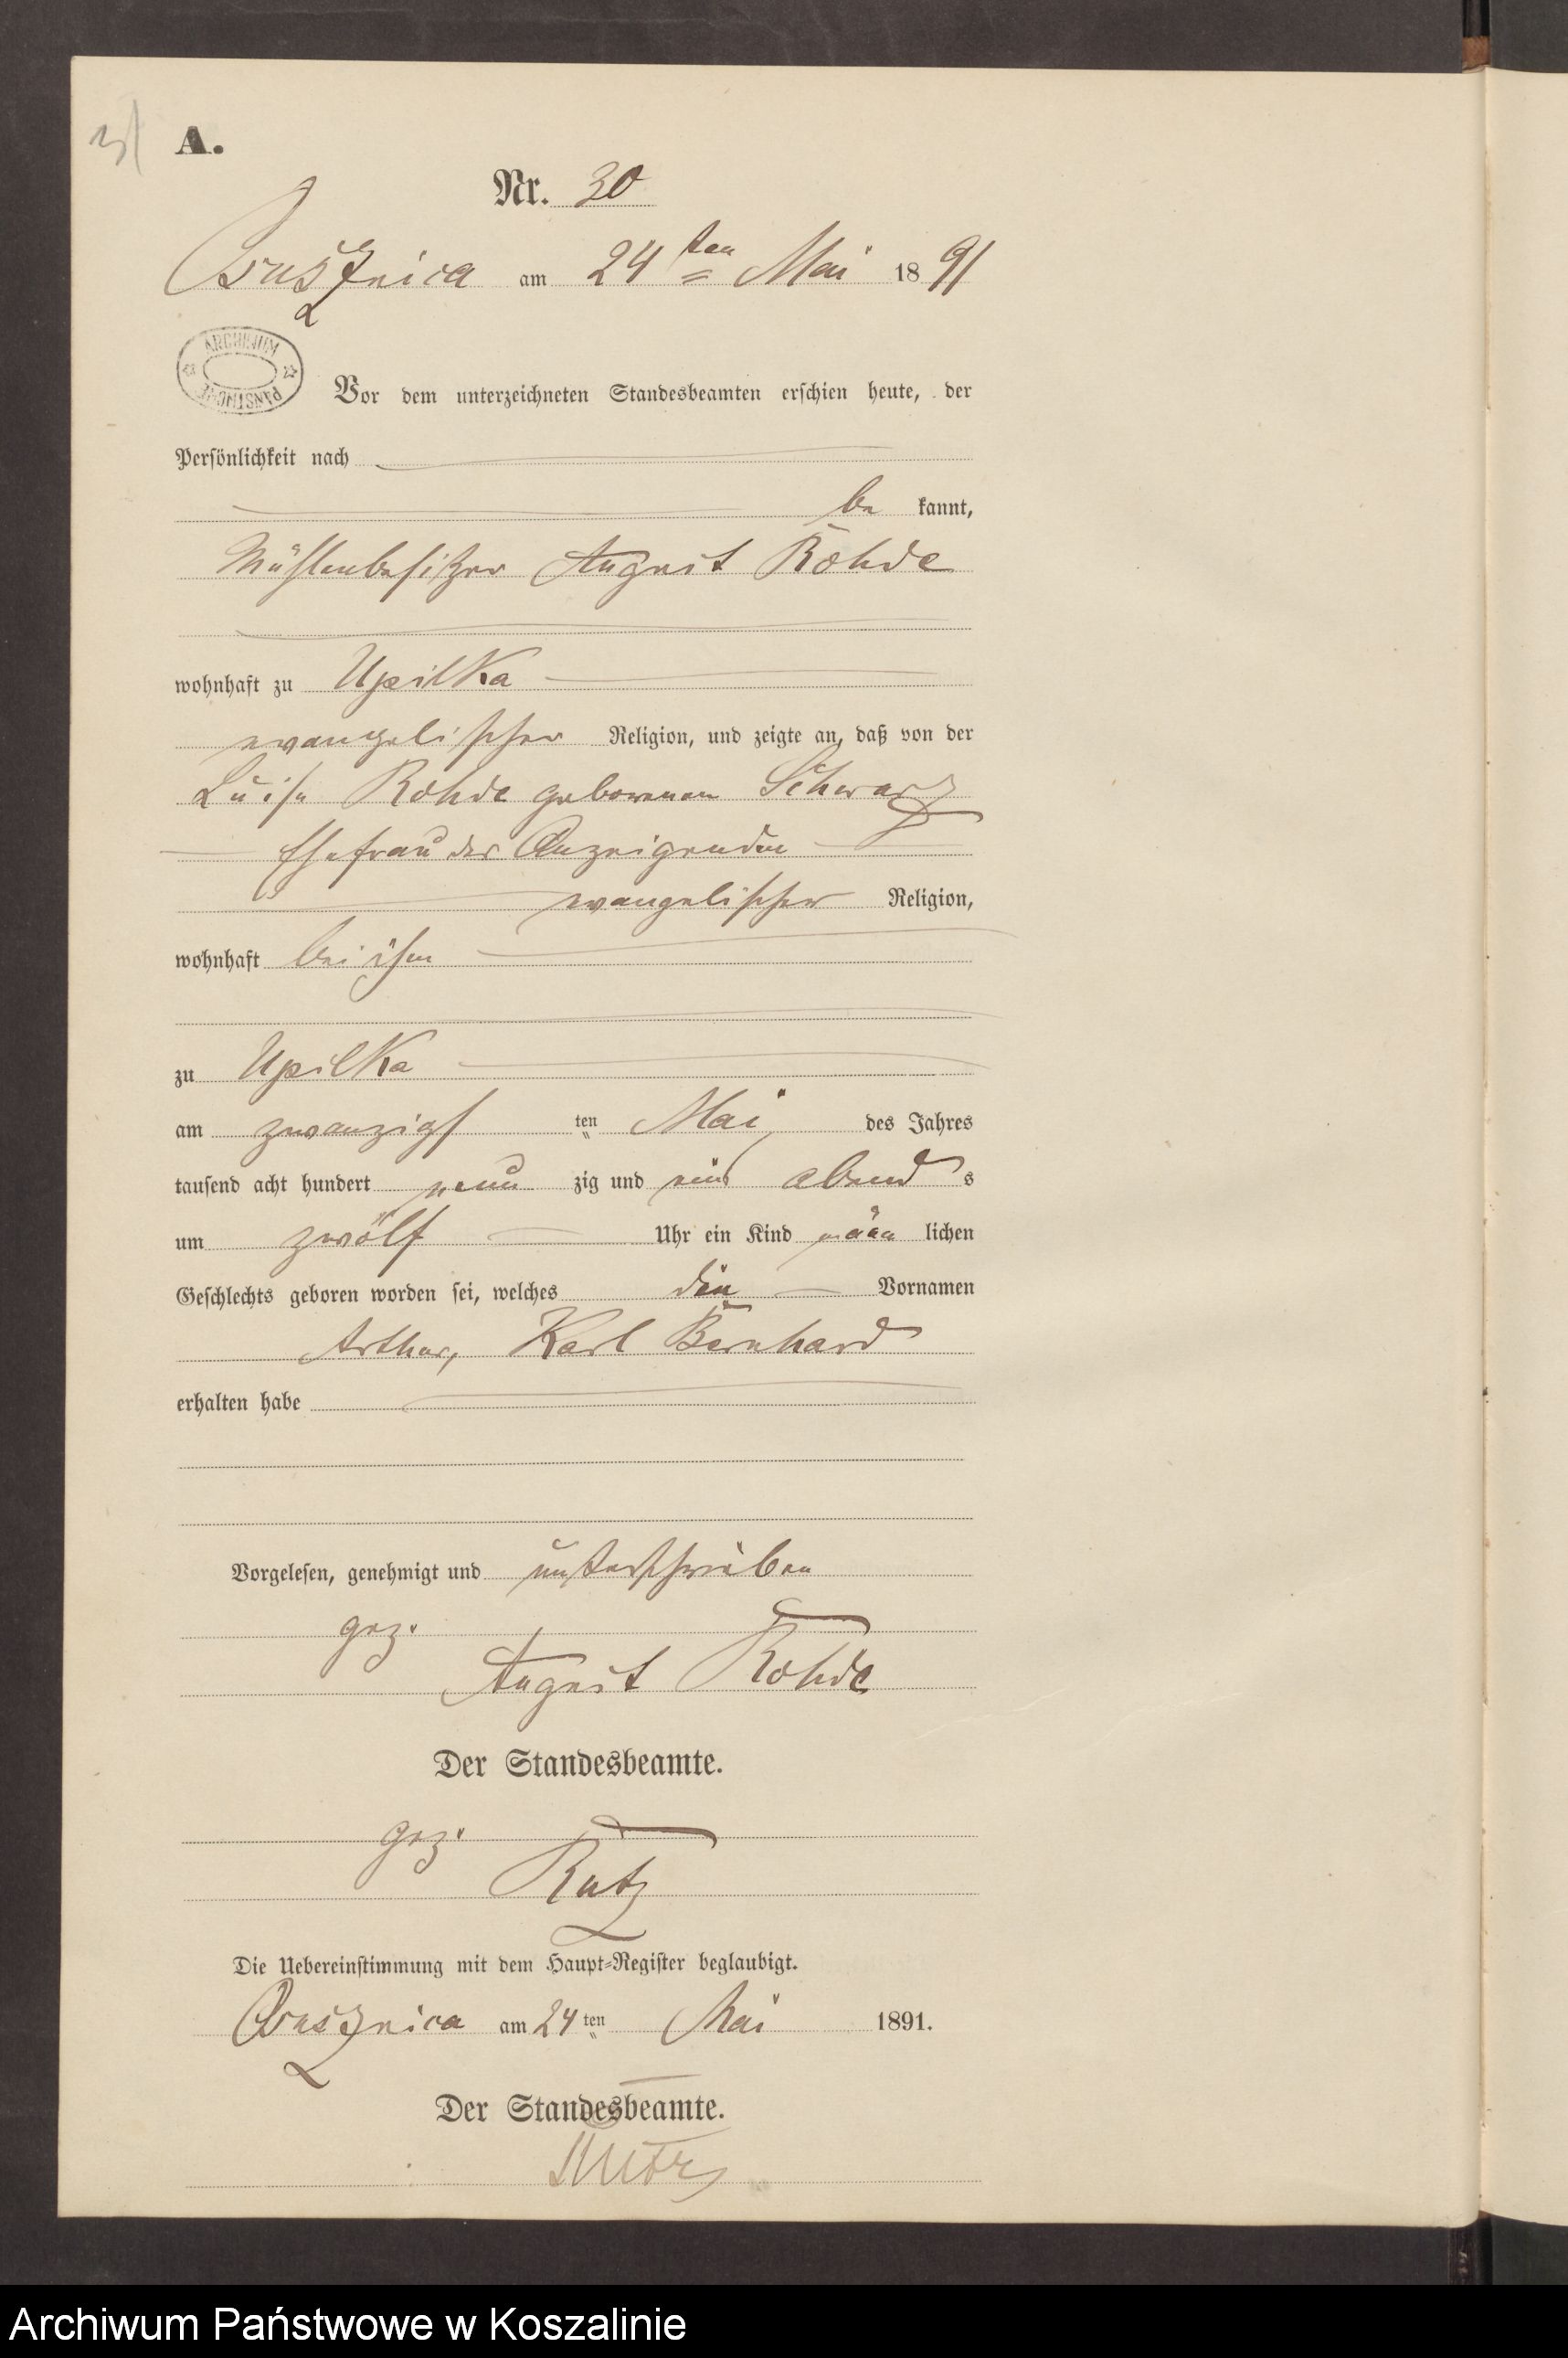 A.
Nr. 30
am 24ten Mai 1891
ARCHIWUM
PAŃSTWOWE
Vor dem unterzeichneten Standesbeamten erschien heute, der
Persönlichkeit nach
be kannt,
Mühlenbesitzer August Rohde
wohnhaft zu Upilka
evangelischer Religion, und zeigte an, daß von der
Luise Rohde geborenen Schwarz
Ehefrau des Anzeigenden
evangelischer Religion,
wohnhaft bei ihm
zu Upilka
am zwanzigsten Mai des Jahres
tausend acht hundert neun zig und ein abend s
um zwölf Uhr ein Kind männ lichen
Geschlechts geboren worden sei, welches die Vornamen
Arthur, Karl Bernhard
erhalten habe
Vorgelesen, genehmigt und unterschrieben
gez.
August Rohde
Der Standesbeamte.
gez.
Rutz
Die Uebereinstimmung mit dem Haupt-Register beglaubigt.
am 24ten Mai 1891.
Der Standesbeamte.
Archiwum Państwowe w Koszalinie